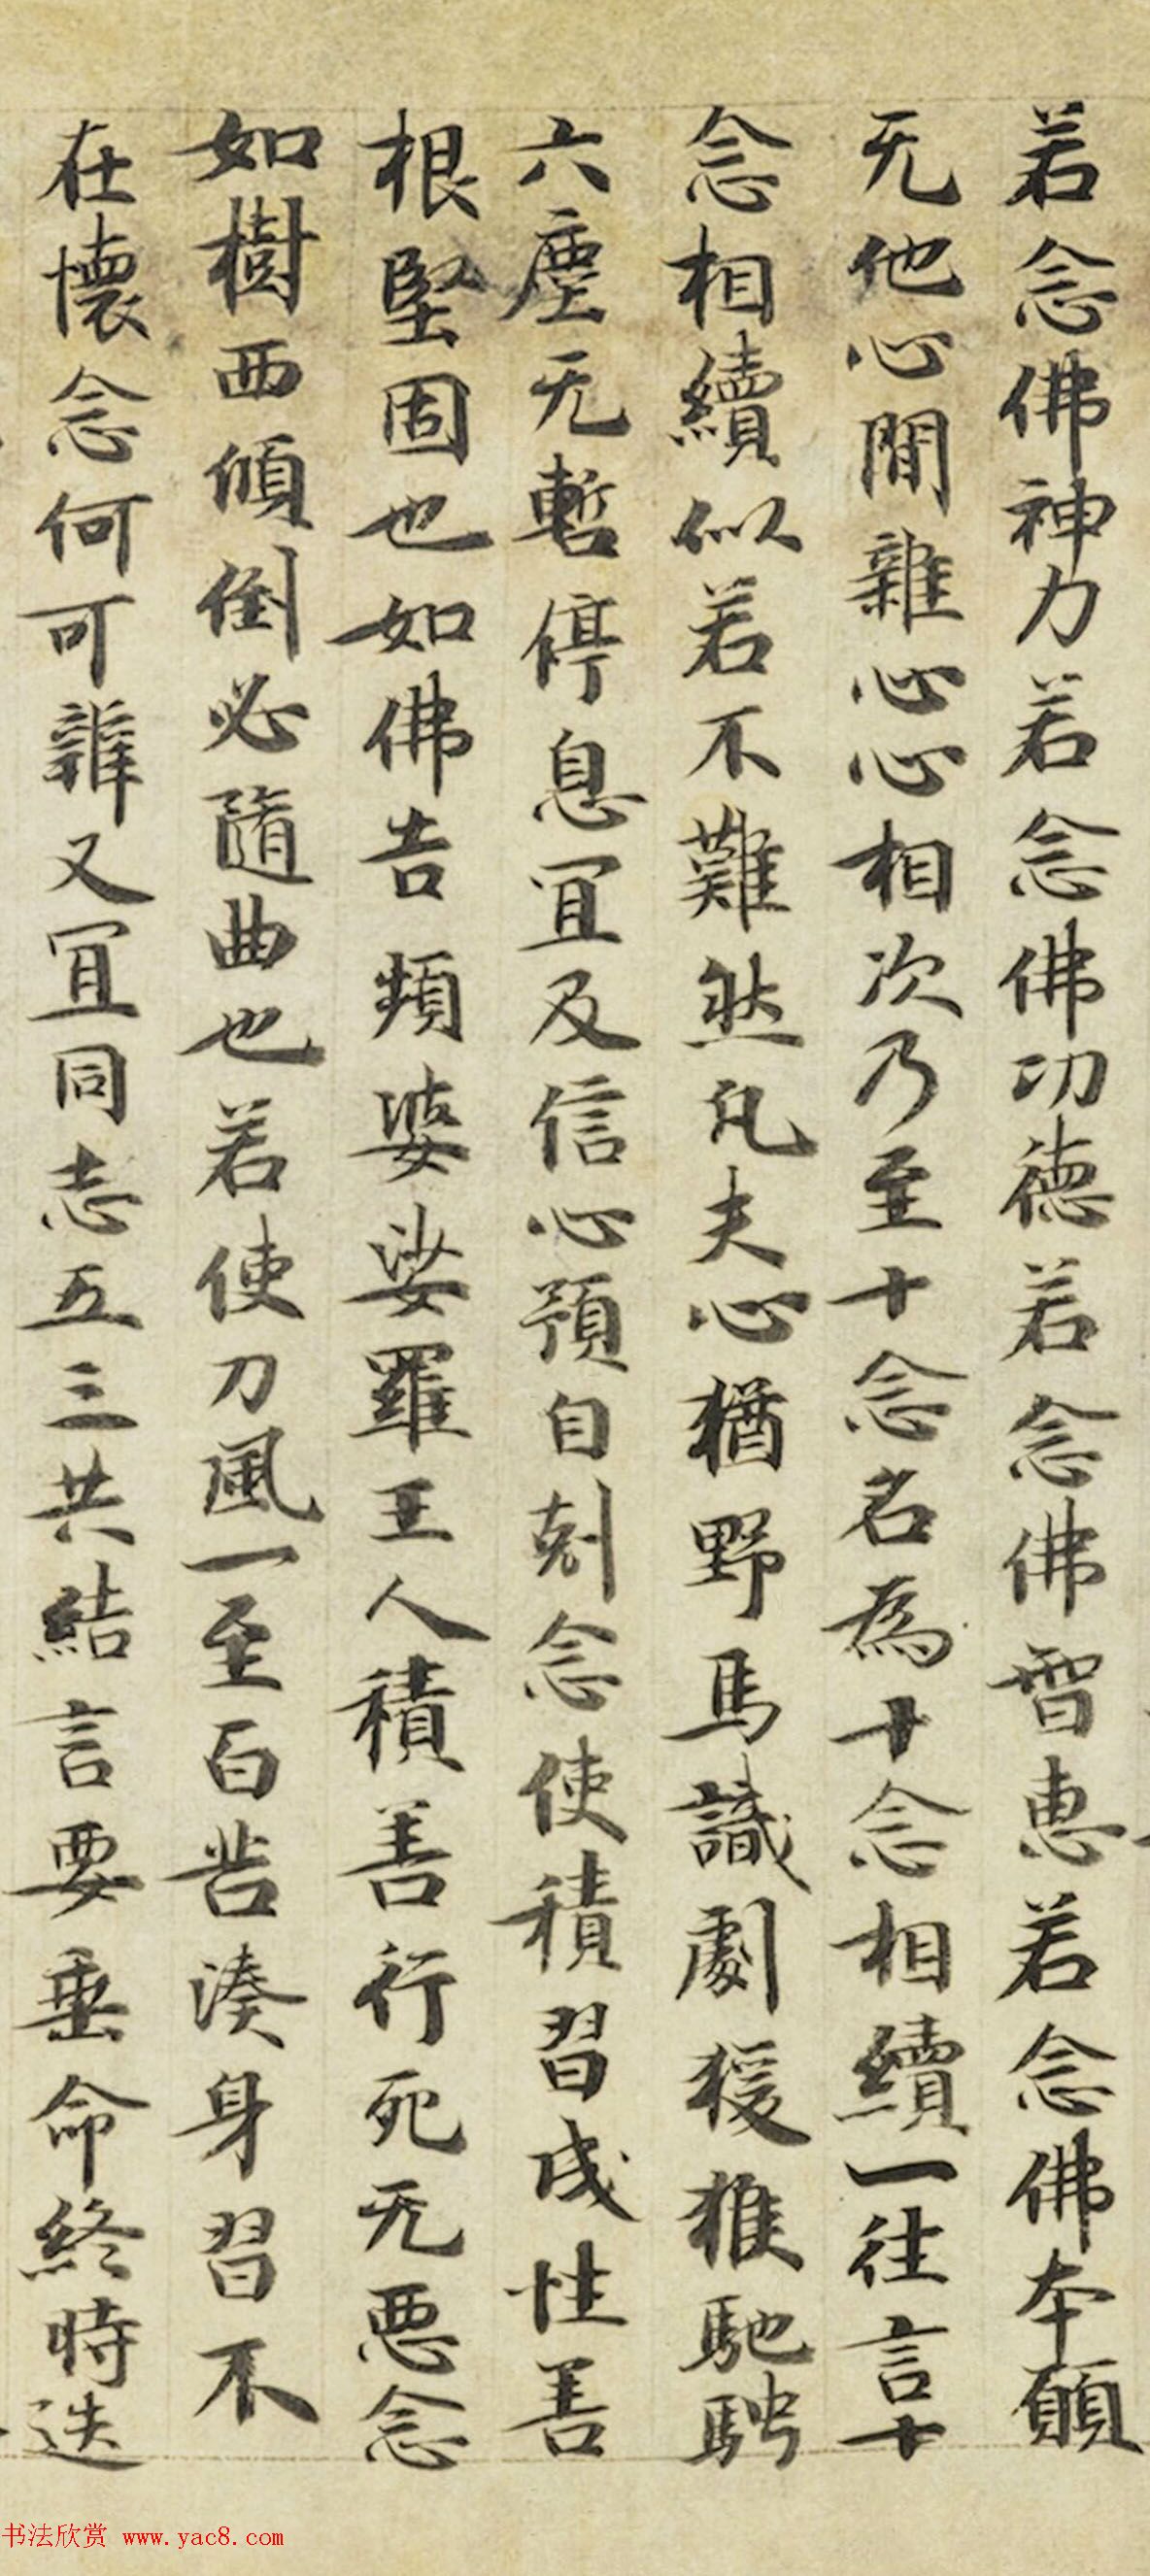 若念佛神力若念佛功德若念佛智惠若念佛本願
无他心間雜心心相次乃至十念名為十念相續一往言十
念相續似若不難然凡夫心猶野馬識劇猨猴馳騁
六塵无暫停息冝及信心預自剋念使積習成性善
根堅固也如佛告頻婆娑羅王人積善行死无惡念
如樹西傾倒必隨曲也若使刀風一至百苦湊身習不
在懷念何可辦又冝同志五三共結言要垂命終時迭
书法欣赏 www.yac8.com